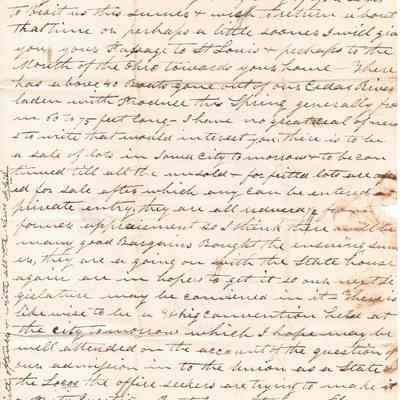 to visit us this summer & wish to return about
that time or perhaps a little sooner I will give
you your Passage to St Louis & perhaps to the
Mouth of the Ohio towards your home - There
has above 40 Boats gone out of our Cedar River
laden with Produce this Spring generally from
in 60 to 75 feet long - I have no great deal of news
to write that would interest you. there is to be
a sale of lots in Iowa City tomorrow & to be con
tinued till all the unsold & forfeited lots are offer
ed for sale after which any can be entered at
private entry, they are all reduced from
former appraisement so I think there will be
many good Bargains Bought the ensuring sum
er, they are so going on with the State house
again are in hopes to get it so our next Le
gislature may be convened in it - There is
likewise to be a Whig convention held at
the city tomorrow which I hope may be
well attended on the account of the question of
our admission in to the Union as a State
the Locos the office seekers are trying to make it